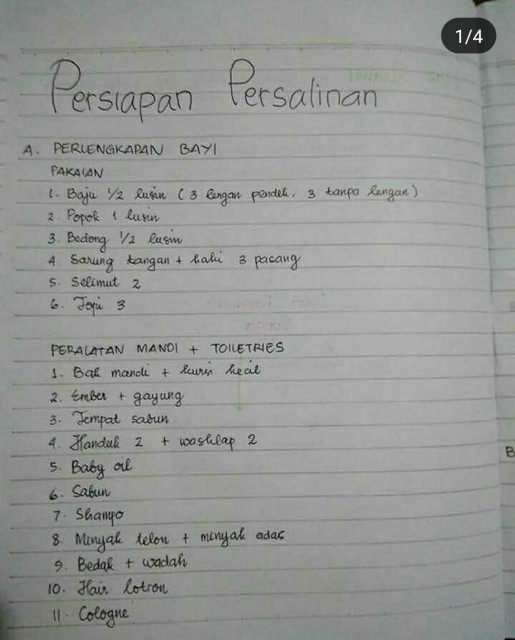 1/4
Persiapan Persalinan
A. PERLENGKAPAN BAYI
PAKAIAN
1. Baju 1/2 lusin (3 lengan pendek, 3 tanpa lengan)
2. Popok 1 lusin
3. Bedong 1/2 lusin
4. Sarung tangan + kaki 3 pasang
5. Selimut 2
6. Topi 3
PERALATAN MANDI + TOILETRIES
1. Bak mandi + kursi kecil
2. Ember + gayung
3. Tempat sabun
4. Handuk 2 + washlap 2
5. Baby oil
6. Sabun
7. Shampo
8. Minyak telon + minyak adas
9. Bedak + wadah
10. Hair lotion
11. Cologne
B